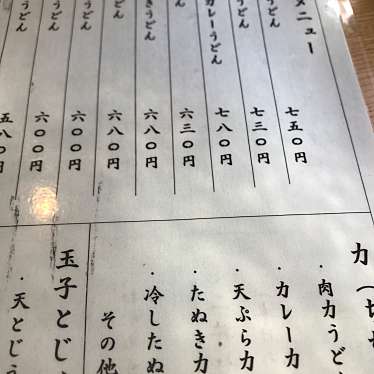 メニュー
どん 七五〇円
うどん 七三〇円
カレーうどん 七八〇円
うどん 六三〇円
きうどん 六八〇円
どん 六八〇円
うどん 六〇〇円
うどん 六〇〇円
うどん 五八〇円
力（切
・肉力うど
・カレー力
・天ぷら力
・たぬき力
・冷したぬ
その他
玉子とじ
・天とじう